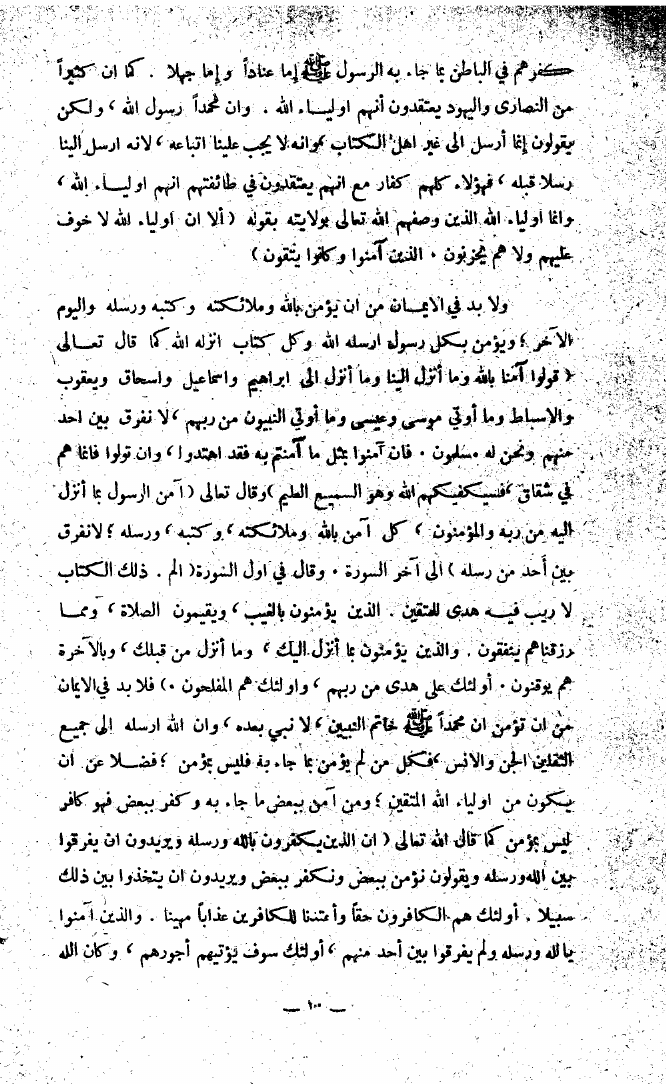 كفرهم في الباطن بما جاء به الرسول ﷺ إما عناداً وإما جهلا . كما ان كثيراً
من النصارى واليهود يعتقدون أنهم اولياء الله . وان محمداً رسول الله ، ولكن
يقولون إنما أرسل الى غير اهل الكتاب ، وانه لا يجب علينا اتباعه ، لانه ارسل الينا
رسلا قبله ، فهؤلاء كلهم كفار مع انهم يعتقدون في طائفتهم انهم اولياء الله ،
وانما اولياء الله الذين وصفهم الله تعالى بولايته بقوله ( ألا ان اولياء الله لا خوف
عليهم ولا هم يحزنون . الذين آمنوا وكانوا يتقون )
ولا بد في الايمان من ان يؤمن بالله وملائكته وكتبه ورسله واليوم
الآخر ؛ ويؤمن بكل رسول ارسله الله وكل كتاب انزله الله كما قال تعالى
( قولوا آمنا بالله وما أنزل الينا وما أنزل الى ابراهيم واسماعيل واسحاق ويعقوب
والاسباط وما أوتي موسى وعيسى وما أوتي النبيون من ربهم ، لا نفرق بين احد
منهم ونحن له مسلمون . فان آمنوا بمثل ما آمنتم به فقد اهتدوا ، وان تولوا فانما هم
في شقاق ، فسيكفيكهم الله وهو السميع العليم ) وقال تعالى ( آمن الرسول بما أنزل
اليه من ربه والمؤمنون ، كل آمن بالله وملائكته ، وكتبه ، ورسله ؛ لانفرق
بين أحد من رسله ) الى آخر السورة . وقال في اول السورة ( الم . ذلك الكتاب
لا ريب فيه هدى للمتقين . الذين يؤمنون بالغيب ، ويقيمون الصلاة ، ومما
رزقناهم ينفقون . والذين يؤمنون بما أنزل اليك ، وما أنزل من قبلك ، وبالآخرة
هم يوقنون . أولئك على هدى من ربهم ، واولئك هم المفلحون . ) فلا بد في الايمان
من ان تؤمن ان محمداً ﷺ خاتم النبيين ، لا نبي بعده ، وان الله ارسله الى جميع
الثقلين الجن والانس ، فكل من لم يؤمن بما جاء به فليس بمؤمن ؛ فضلا عن ان
يكون من اولياء الله المتقين ؛ ومن آمن ببعض ما جاء به وكفر ببعض فهو كافر
ليس بمؤمن كما قال الله تعالى ( ان الذين يكفرون بالله ورسله ويريدون ان يفرقوا
بين الله ورسله ويقولون نؤمن ببعض ونكفر ببعض ويريدون ان يتخذوا بين ذلك
سبيلا . أولئك هم الكافرون حقاً وأعتدنا للكافرين عذاباً مهينا . والذين آمنوا
بالله ورسله ولم يفرقوا بين أحد منهم ، أولئك سوف يؤتيهم أجورهم ، وكان الله
— ١٠٠ —